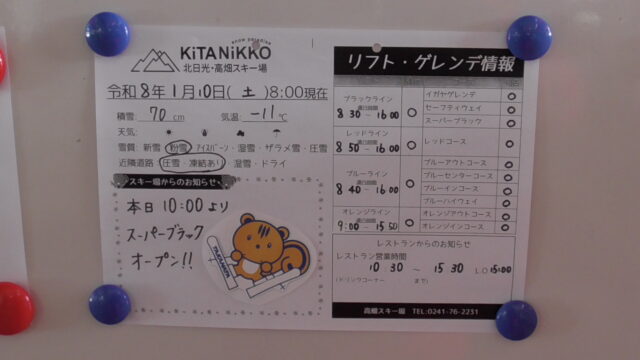 snow paradise
KiTANiKKO
北日光・高畑スキー場
令和8年1月10日(土)8:00現在
積雪: 70cm 気温: -11℃
天気:
雪質: 新雪・粉雪・アイスバーン・湿雪・ザラメ雪・圧雪
近隣道路: 圧雪・凍結あり・湿雪・ドライ
スキー場からのお知らせ
本日10:00より
スーパーブラック
オープン!!
TAKAHATA
リフト・ゲレンデ情報
ブラックライン
運行時間
8:30-16:00
〇
イガヤゲレンデ 〇
セーフティウェイ 〇
スーパーブラック 〇
レッドライン
運行時間
8:50-16:00
〇
レッドコース 〇
ブルーライン
運行時間
8:40-16:00
〇
ブルーアウトコース 〇
ブルーセンターコース 〇
ブルーインコース 〇
ブルーハイウェイ 〇
オレンジライン
運行時間
9:00-15:50
〇
オレンジアウトコース 〇
オレンジインコース 〇
レストランからのお知らせ
レストラン営業時間
10:30 ~ 15:30 LO15:00
(ドリンクコーナー まで)
高畑スキー場 TEL:0241-76-2231